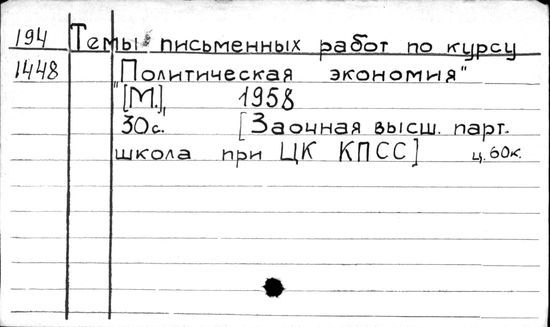 194 Темы письменных работ по курсу
1448 "Политическая экономия"
[М.], 1958
30с. [Заочная высш. парт.
школа при ЦК КПСС] ц. 60к.